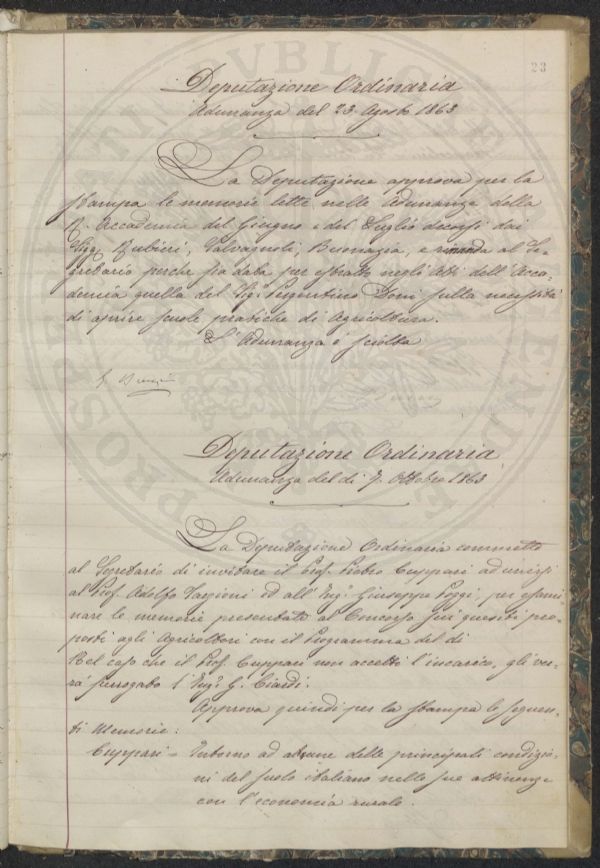 23
Deputazione Ordinaria
Adunanza del 23 Agosto 1863
La Deputazione approva per la
stampa le memorie lette nelle Adunanze della
R. Accademia del Giugno e del Luglio decorsi dai
Sigg. Rubieri, Salvagnoli, Buonazia, e rimanda al Se-
gretario perché sia data per estratto negli Atti dell'Acca-
demia quella del Sig. Doni sulla necessità
di aprire scuole pratiche di Agricoltura.
L'Adunanza è sciolta
Deputazione Ordinaria
Adunanza del dì 7. Ottobre 1863
La Deputazione Ordinaria commette
al Segretario di invitare il Prof. Pietro Cuppari ad unirsi
al Prof. Adolfo Targioni ed all'Ing. Giuseppe Poggi, per esami-
nare le memorie presentate al Concorso sui quesiti pro-
posti agli Agricoltori con il Programma del dì
Nel caso che il Prof. Cuppari non accetti l'incarico, gli ver-
rà surrogato l'Ing. G. Ciardi.
Approva quindi per la stampa le seguen-
ti Memorie:
Cuppari = Intorno ad alcune delle principali condizio-
ni del suolo italiano nelle sue attinenze
con l'economia rurale.